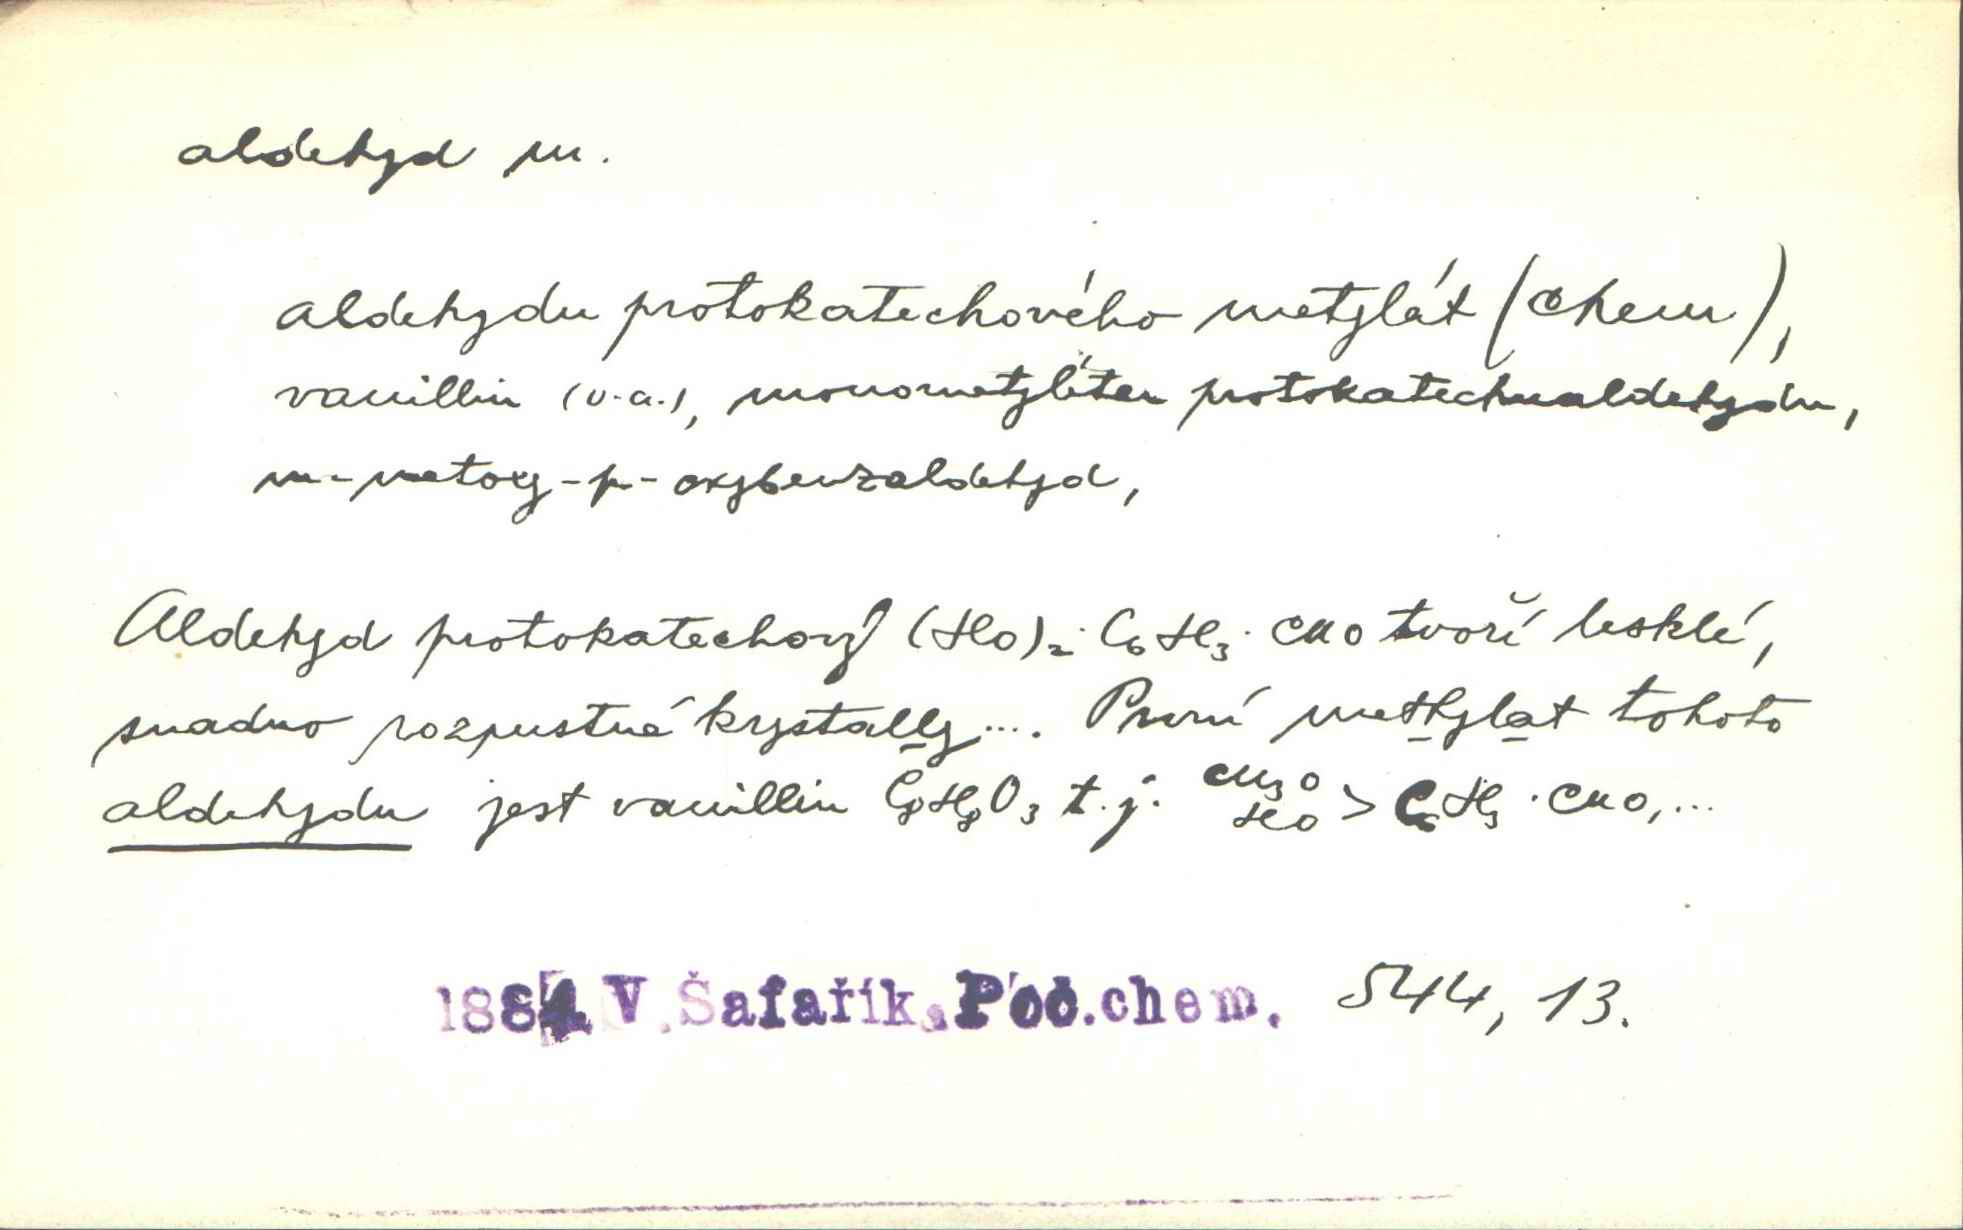 aldehyd m.
aldehydu protokatechového metylát (chem),
vanillin (v.a.), monometyléter protokatechualdehydu,
m-metoxy-p-oxybenzaldehyd,
Aldehyd protokatechový (HO)₂·C₆H₃·CHO tvoří lesklé,
snadno rozpustné krystally.... První methylat tohoto
aldehydu jest vanillin C₈H₈O₃ t.j. CH₃O HO > C₆H₃·CHO,...
1884 V. Šafařík. Poč.chem. 544, 13.